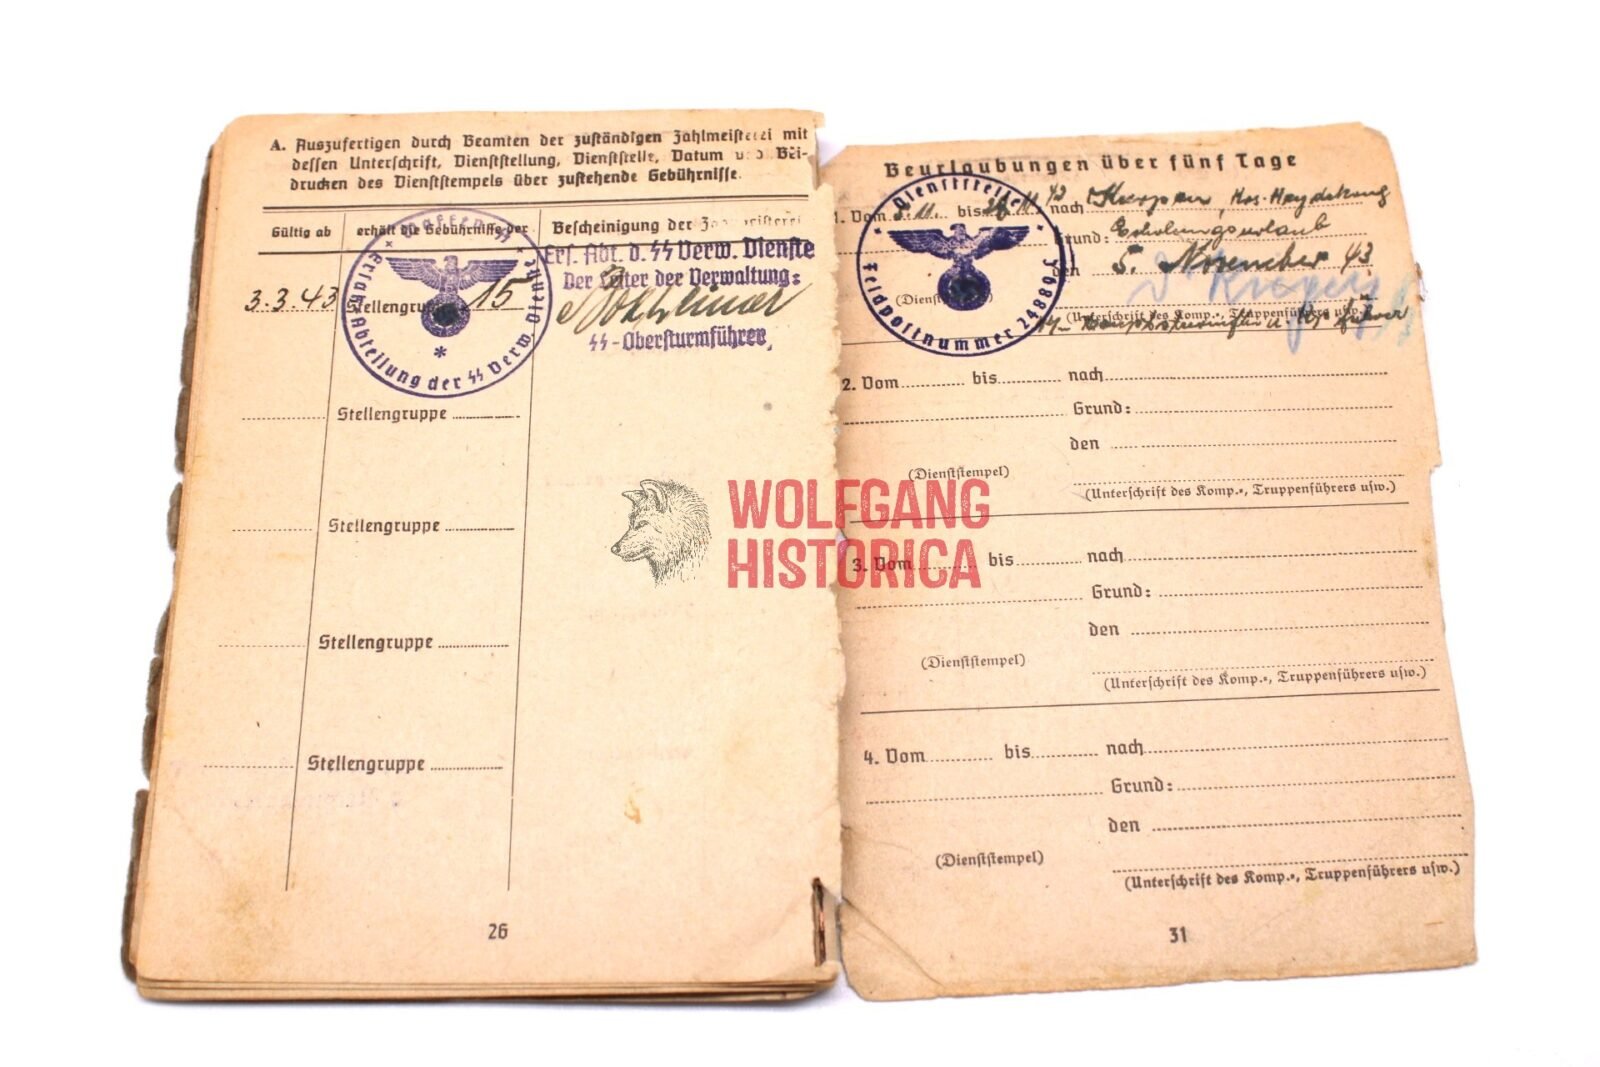 A. Auszufertigen durch Beamten der zuständigen Zahlmeisterei mit
dessen Unterschrift, Dienststellung, Dienststelle, Datum und Bei-
drucken des Dienststempels über zustehende Gebührnisse.
Gültig ab
erhält die Gebührnisse der
Bescheinigung der Zahlmeisterei
Waffen-SS
Ersatz-Abteilung der SS Verw. Dienste
Ers. Abt. d. SS Verw. Dienste
Der Leiter der Verwaltung:
3.3.43 Stellengruppe 15
SS-Obersturmführer
Stellengruppe
Stellengruppe
Stellengruppe
Stellengruppe
26
Beurlaubungen über fünf Tage
Dienststelle
Feldpostnummer 24889
1. Vom bis nach
Grund: Erholungsurlaub
den 5. November 43
(Dienststempel)
(Unterschrift des Komp.-, Truppenführers usw.)
2. Vom bis nach
Grund:
den
(Dienststempel)
(Unterschrift des Komp.-, Truppenführers usw.)
3. Vom bis nach
Grund:
den
(Dienststempel)
(Unterschrift des Komp.-, Truppenführers usw.)
4. Vom bis nach
Grund:
den
(Dienststempel)
(Unterschrift des Komp.-, Truppenführers usw.)
31
WOLFGANG
HISTORICA